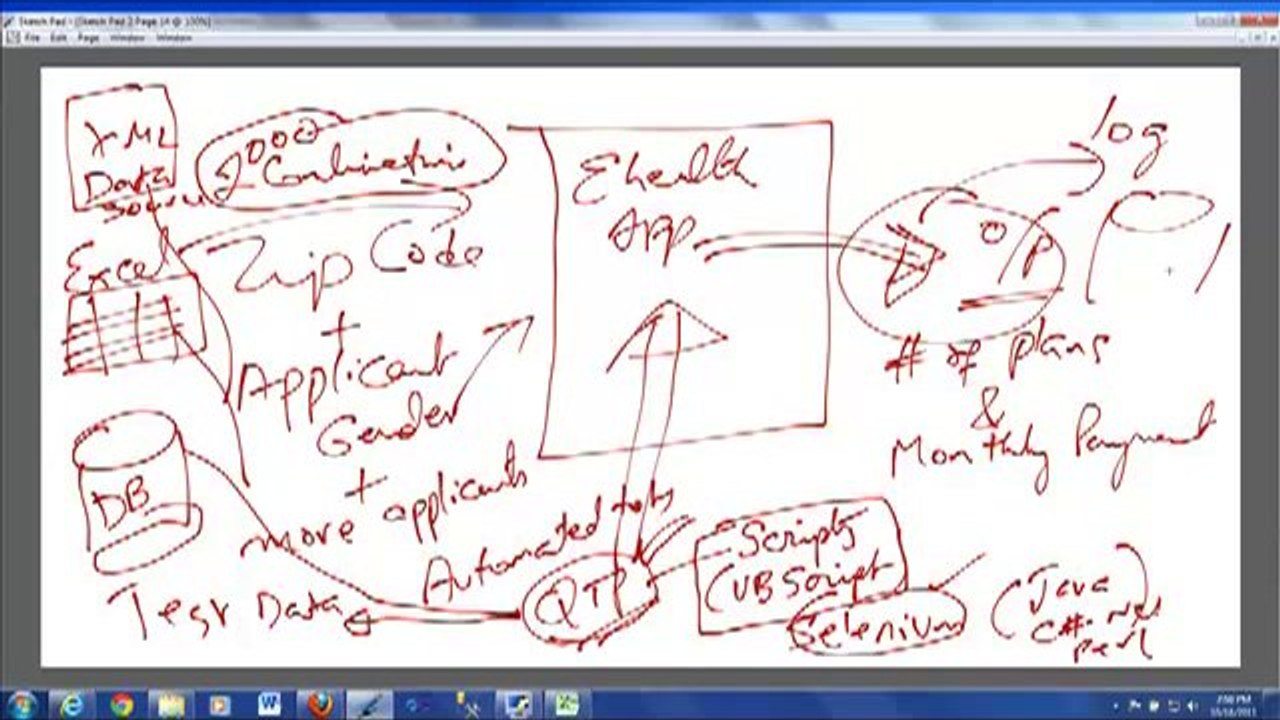 Sketch Pad - [Sketch Pad 2 Page 14 @ 100%]
File Edit Page Window Window
XML
Data
Source
2000
Combinations
Excel
Zip Code
+
Applicant
Gender
+
more applicants
DB
Test Data
Ehealth
App
Automated tests
QTP
Scripts
(VB Script
Selenium
(Java
C#.net
perl
)
log
O/P
# of plans
&
Monthly Payment
W
7:58 PM